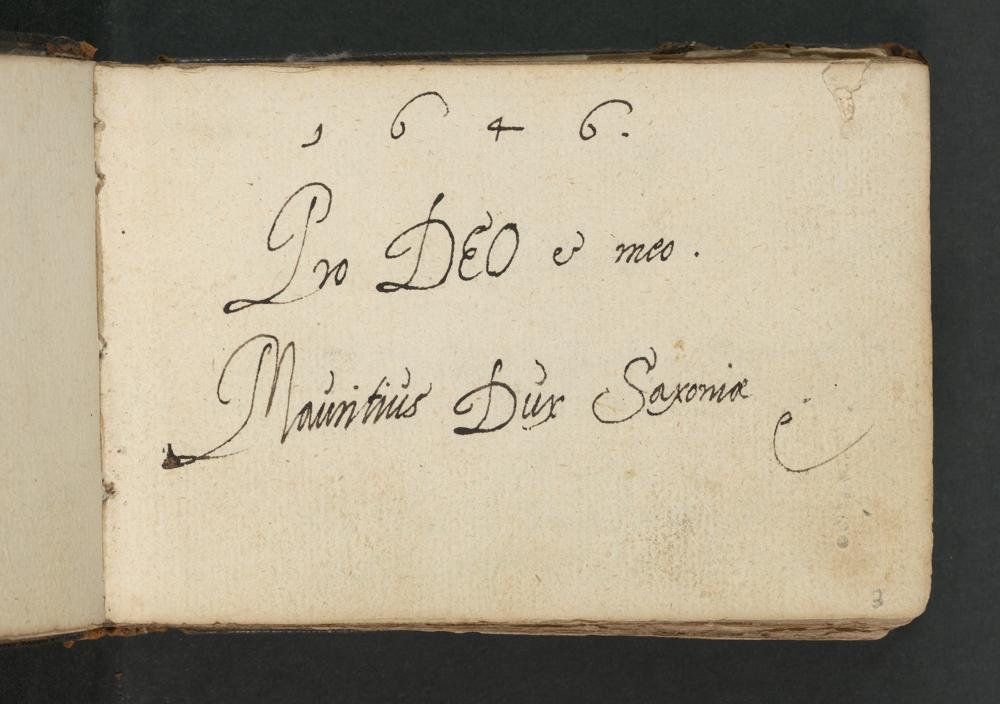 1646.
Pro DEO & meo.
Mauritius Dux Saxoniæ
3